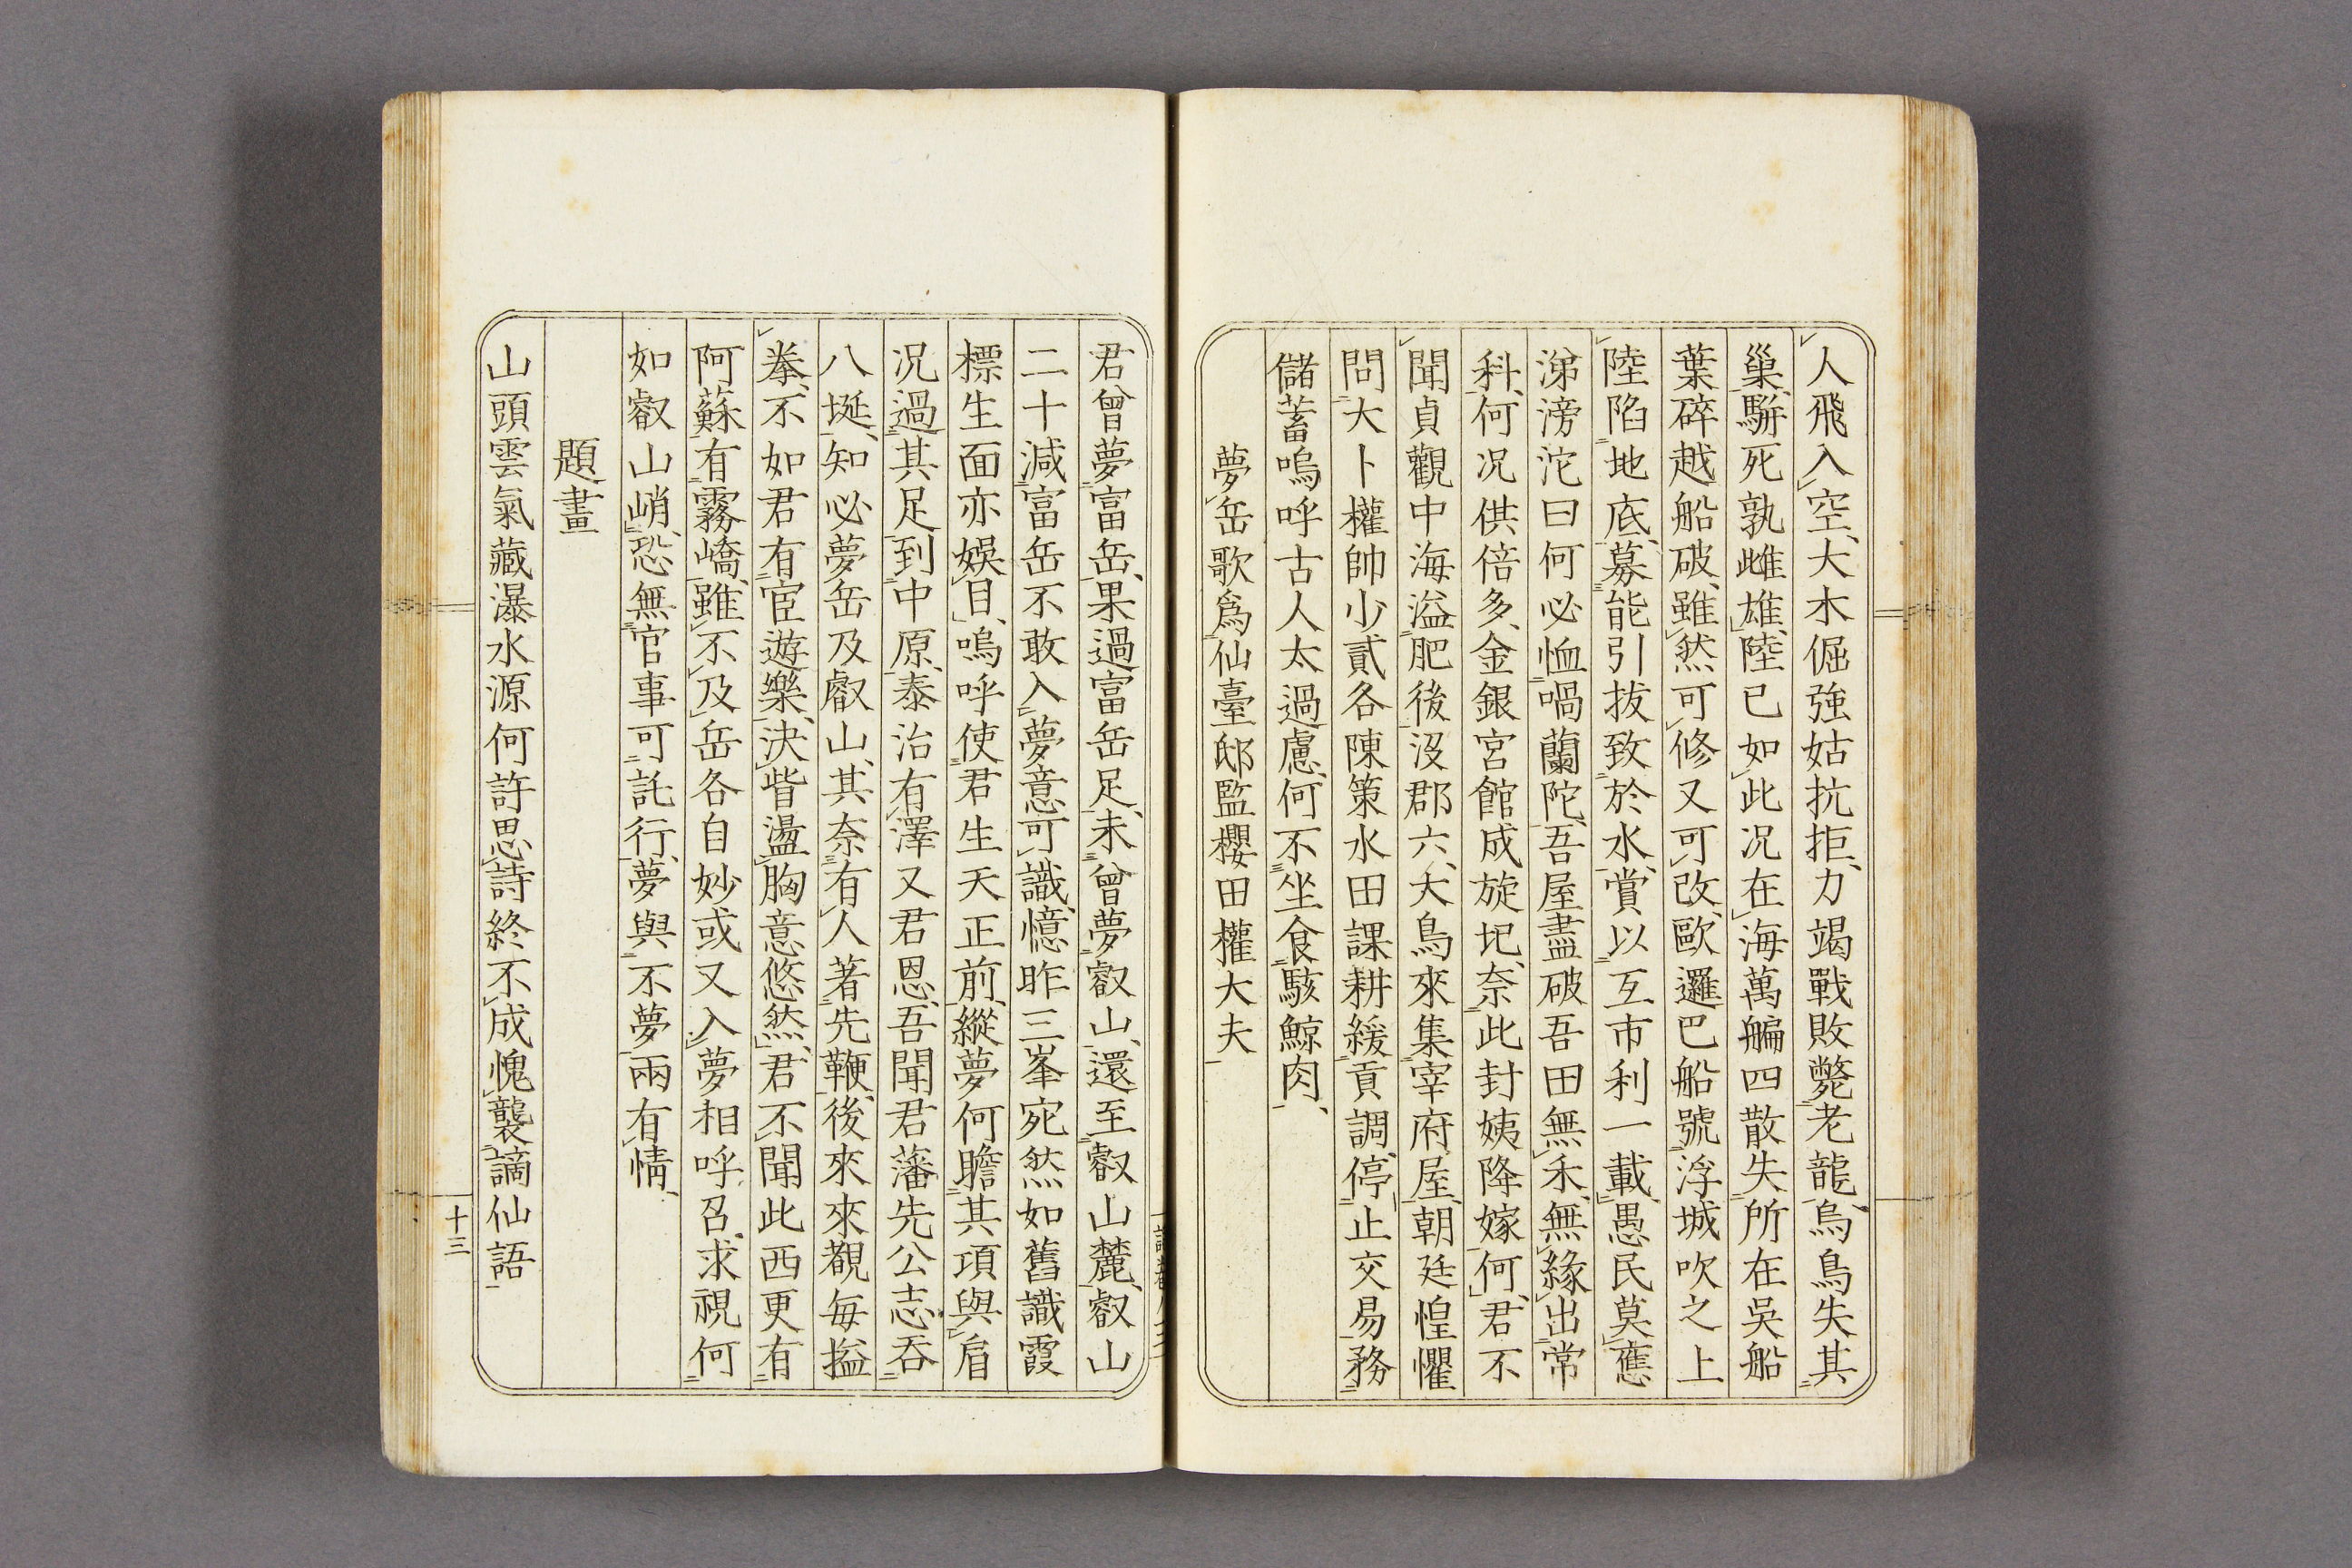 人飛入空、大木倔強姑抗拒、力竭戰敗斃老龍、烏鳥失其
巢、駢死孰雌雄、陸已如此況在海萬艑四散失所在吳船
葉碎越船破、雖然可修又可改、歐邏巴船號浮城吹之上
陸陷地底、募能引拔致於水、賞以互市利一載、愚民莫應
涕滂沱曰何必恤喎蘭陀、吾屋盡破吾田無禾、無緣出常
科、何況供倍多、金銀宮館成旋圮、奈此封姨降嫁何、君不
聞貞觀中海溢肥後沒郡六、大鳥來集宰府屋、朝廷惶懼
問大卜權帥少貳各陳策水田課耕緩貢調、停止交易務
儲蓄嗚呼古人太過慮、何不坐食駭鯨肉、
夢岳歌爲仙臺邸監櫻田權大夫
君曾夢富岳、果過富岳足、未曾夢叡山、還至叡山麓、叡山
二十減富岳不敢入夢意可識、憶昨三峯宛然如舊識霞
標生面亦娛目、嗚呼使君生天正前、縱夢何瞻其項與肩
況過其足到中原、泰治有澤又君恩、吾聞君藩先公志吞
八埏、知必夢岳及叡山、其奈有人著先鞭、後來來覩每搤
拳、不如君有宦遊樂、決眥盪胸意悠然、君不聞此西更有
阿蘇有霧嶠、雖不及岳各自妙或又入夢相呼召、求視何
如叡山峭、恐無官事可託行、夢與不夢兩有情、
題畫
山頭雲氣藏瀑水源何許思詩終不成愧襲謫仙語
十三